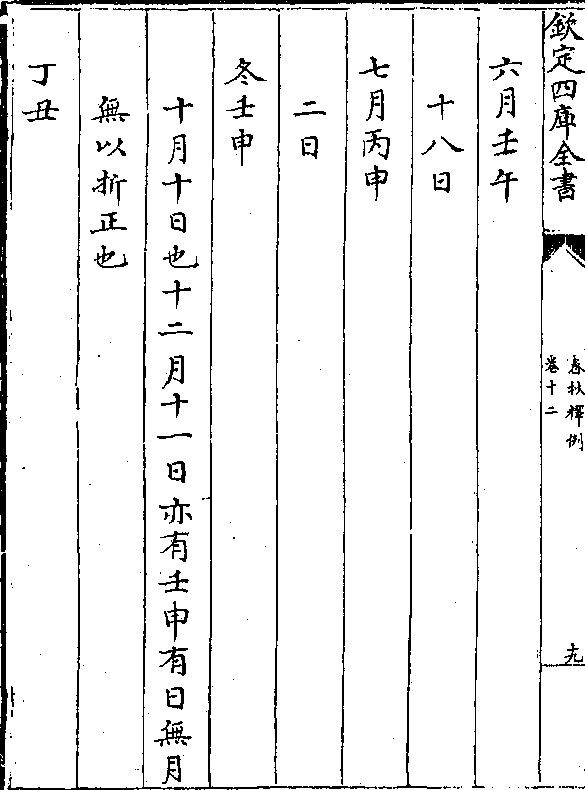 欽定四庫全書
春秋釋例
卷十二
十九
六月壬午
十八日
七月丙申
二日
冬壬申
十月十日也十二月十一日亦有壬申有日無月
無以折正也
丁丑